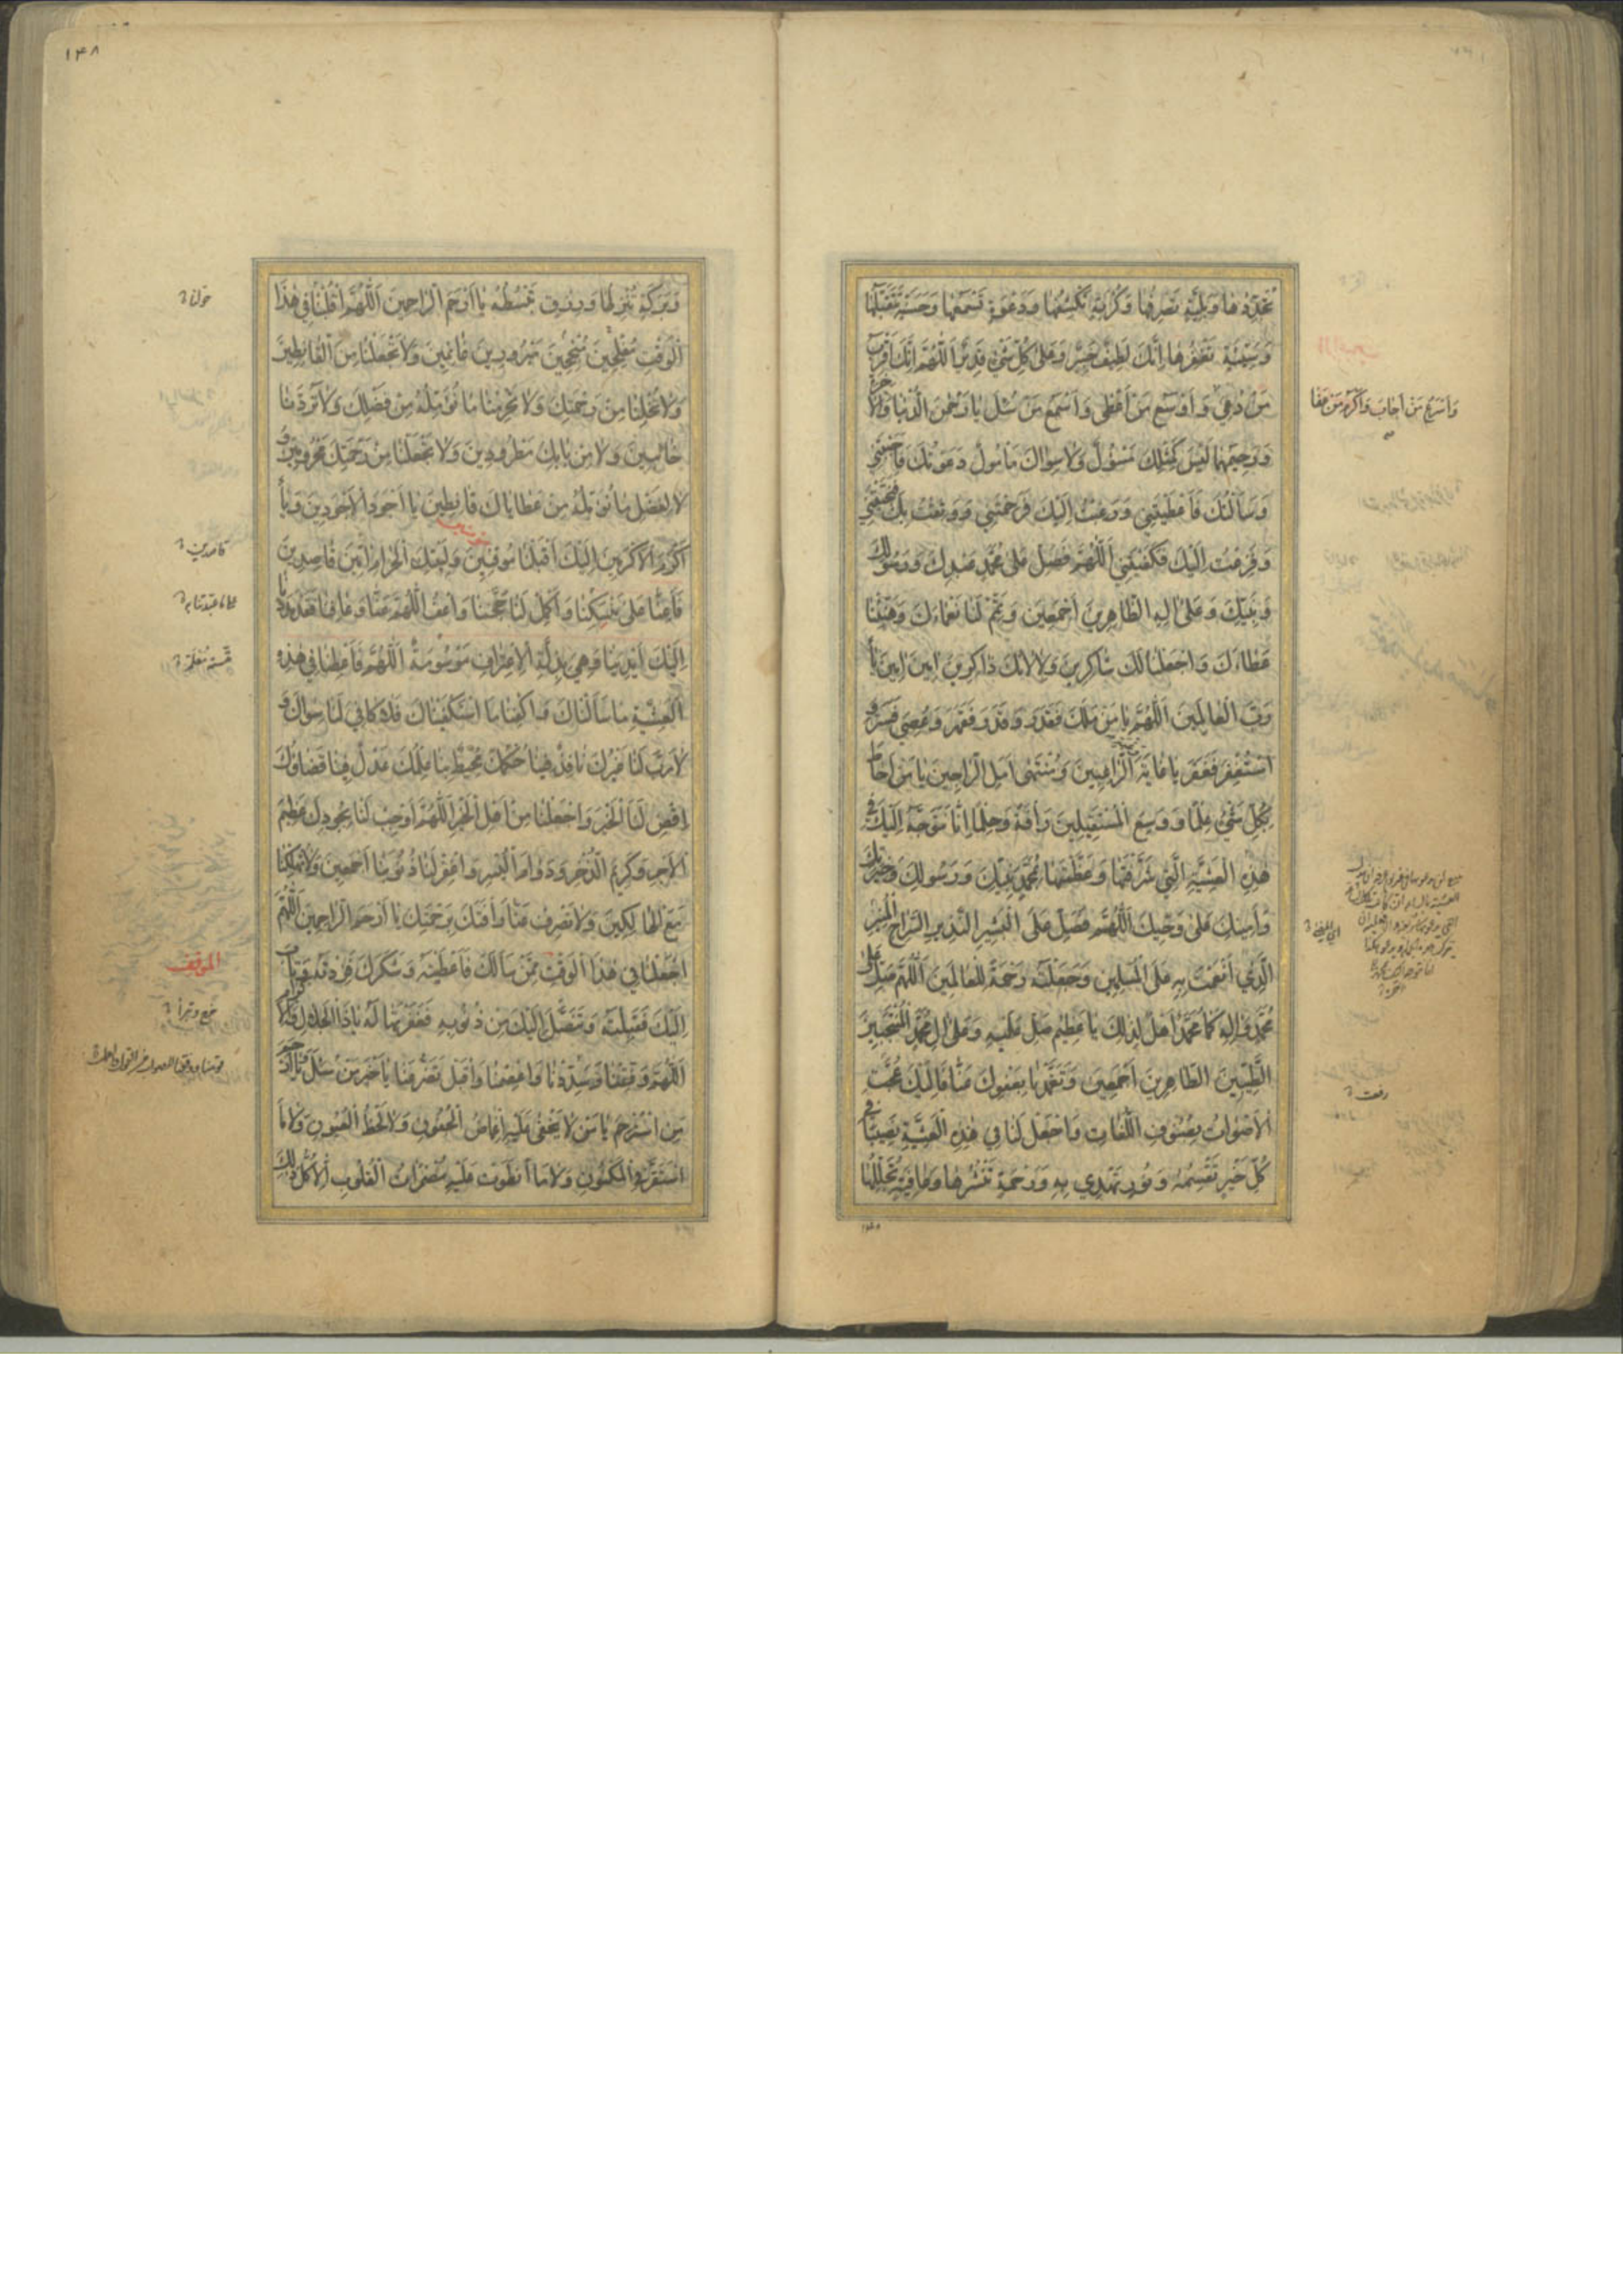 تُجَدِّدُها وَبَلِيَّةٍ تَصْرِفُها وَكُرْبَةٍ تَكْشِفُها وَدَعْوَةٍ تَسْمَعُها وَحَسَنَةٍ تَتَقَبَّلُها
وَسَيِّئَةٍ تَغْفِرُها اِنَّكَ لَطيفٌ خَبيرٌ وَعَلى كُلِّ شَيْءٍ قَديرٌ اَللّهُمَّ اِنَّكَ اَقْرَبُ
مَنْ دُعِيَ وَاَوْسَعُ مَنْ اَعْطى وَاَسْمَعُ مَنْ سُئِلَ يا رَحْمنَ الدُّنْيا وَالاخِرَةِ
وَاَسْرَعُ مَنْ اَجابَ وَاَكْرَمُ مَنْ عَفا
وَرَحيمَهُما لَيْسَ كَمِثْلِكَ مَسْؤُلٌ وَلا سِواكَ مَاْمُولٌ دَعَوْتُكَ فَاَجَبْتَني
وَسَاَلْتُكَ فَاَعْطَيْتَني وَرَغِبْتُ اِلَيْكَ فَرَحِمْتَني وَوَثِقْتُ بِكَ فَنَجَّيْتَني
وَفَزِعْتُ اِلَيْكَ فَكَفَيْتَني اَللّهُمَّ فَصَلِّ عَلى مُحَمَّدٍ عَبْدِكَ وَرَسُولِكَ
وَنَبِيِّكَ وَعَلى الِهِ الطّاهِرينَ اَجْمَعينَ وَتَمِّمْ لَنا نَعْماءَكَ وَهَنِّئْنا
عَطاءَكَ وَاجْعَلْنا لَكَ شاكِرينَ وَلِالائِكَ ذاكِرينَ امينَ امينَ يا
رَبَّ الْعالَمينَ اَللّهُمَّ يا مَنْ مَلَكَ فَقَدَرَ وَقَدَرَ فَقَهَرَ وَعُصِيَ فَسَتَرَ وَ
اسْتُغْفِرَ فَغَفَرَ يا غايَةَ الرّاغِبينَ وَمُنْتَهى اَمَلِ الرّاجينَ يا مَنْ اَحاطَ
بِكُلِّ شَيْءٍ عِلْمًا وَوَسِعَ الْمُسْتَقيلينَ رَاْفَةً وَحِلْمًا اِنّا نَتَوَجَّهُ اِلَيْكَ في
هذِهِ الْعَشِيَّةِ الَّتي شَرَّفْتَها وَعَظَّمْتَها بِمُحَمَّدٍ نَبِيِّكَ وَرَسُولِكَ وَخِيَرَتِكَ
وَاَمينِكَ عَلى وَحْيِكَ اَللّهُمَّ فَصَلِّ عَلَى الْبَشيرِ النَّذيرِ السِّراجِ الْمُنيرِ
الَّذي اَنْعَمْتَ بِهِ عَلَى الْمُسْلِمينَ وَجَعَلْتَهُ رَحْمَةً لِلْعالَمينَ اَللّهُمَّ صَلِّ عَلى
مُحَمَّدٍ وَالِهِ كَما مُحَمَّدٌ اَهْلٌ لِذلِكَ يا عَظيمُ صَلِّ عَلَيْهِ وَعَلى الِ مُحَمَّدٍ الْمُنْتَجَبينَ
الطَّيِّبينَ الطّاهِرينَ اَجْمَعينَ وَتَغَمَّدْنا بِعَفْوِكَ عَنّا فَاِلَيْكَ عَجَّتِ
الْاَصْواتُ بِصُنُوفِ اللُّغاتِ وَاجْعَلْ لَنا في هذِهِ الْعَشِيَّةِ نَصيبًا في
كُلِّ خَيْرٍ تَقْسِمُهُ وَنُورٍ تَهْدي بِهِ وَرَحْمَةٍ تَنْشُرُها وَعافِيَةٍ تُجَلِّلُها
١٤٨
وَبَرَكَةٍ تُنْزِلُها وَرِزْقٍ تَبْسُطُهُ يا اَرْحَمَ الرّاحِمينَ اَللّهُمَّ اقْلِبْنا في هذَا
الْوَقْتِ مُفْلِحينَ مُنْجِحينَ مَبْرُورينَ غانِمينَ وَلا تَجْعَلْنا مِنَ الْقانِطينَ
وَلا تُخْلِنا مِنْ رَحْمَتِكَ وَلا تَحْرِمْنا ما نُؤَمِّلُهُ مِنْ فَضْلِكَ وَلا تَرُدَّنا
خائِبينَ وَلا مِنْ بابِكَ مَطْرُودينَ وَلا تَجْعَلْنا مِنْ رَحْمَتِكَ مَحْرُومينَ وَ
لا لِفَضْلِ ما نُؤَمِّلُهُ مِنْ عَطاياكَ قانِطينَ يا اَجْوَدَ الْاَجْوَدينَ وَيا
اَكْرَمَ الْاَكْرَمينَ اِلَيْكَ اَقْبَلْنا مُوقِنينَ وَلِبَيْتِكَ الْحَرامِ امّينَ قاصِدينَ
فَاَعِنّا عَلى مَنْسَكِنا وَاَكْمِلْ لَنا حَجَّنا وَاعْفُ اللّهُمَّ عَنّا وَعافِنا فَقَدْ مَدَدْنا
اِلَيْكَ اَيْدِيَنا وَهِيَ بِذِلَّةِ الْاِعْتِرافِ مَوْسُومَةٌ اَللّهُمَّ فَاَعْطِنا في هذِهِ
الْعَشِيَّةِ ما سَاَلْناكَ وَاكْفِنا مَا اسْتَكْفَيْناكَ فَلا كافِيَ لَنا سِواكَ وَ
لا رَبَّ لَنا غَيْرُكَ نافِذٌ فينا حُكْمُكَ مُحيطٌ بِنا عِلْمُكَ عَدْلٌ فينا قَضاؤُكَ
اِقْضِ لَنَا الْخَيْرَ وَاجْعَلْنا مِنْ اَهْلِ الْخَيْرِ اَللّهُمَّ اَوْجِبْ لَنا بِجُودِكَ عَظيمَ
الْاَجْرِ وَكَريمَ الذُّخْرِ وَدَوامَ الْيُسْرِ وَاغْفِرْ لَنا ذُنُوبَنا اَجْمَعينَ وَلا تُهْلِكْنا
مَعَ الْهالِكينَ وَلا تَصْرِفْ عَنّا رَاْفَتَكَ بِرَحْمَتِكَ يا اَرْحَمَ الرّاحِمينَ اَللّهُمَّ
اجْعَلْنا في هذَا الْوَقْتِ مِمَّنْ سَاَلَكَ فَاَعْطَيْتَهُ وَشَكَرَكَ فَزِدْتَهُ وَتابَ
الموقف
اِلَيْكَ فَقَبِلْتَهُ وَتَنَصَّلَ اِلَيْكَ مِنْ ذُنُوبِهِ فَغَفَرْتَها لَهُ يا ذَا الْجَلالِ وَالْاِكْرامِ
اَللّهُمَّ وَفِّقْنا وَسَدِّدْنا وَاعْصِمْنا وَاقْبَلْ تَضَرُّعَنا يا خَيْرَ مَنْ سُئِلَ وَيا اَرْحَمَ
مَنِ اسْتُرْحِمَ يا مَنْ لا يَخْفى عَلَيْهِ اِغْماضُ الْجُفُونِ وَلا لَحْظُ الْعُيُونِ وَلا مَا
اسْتَقَرَّ فِي الْمَكْنُونِ وَلا مَا انْطَوَتْ عَلَيْهِ مُضْمَراتُ الْقُلُوبِ اَلا كُلُّ ذلِكَ